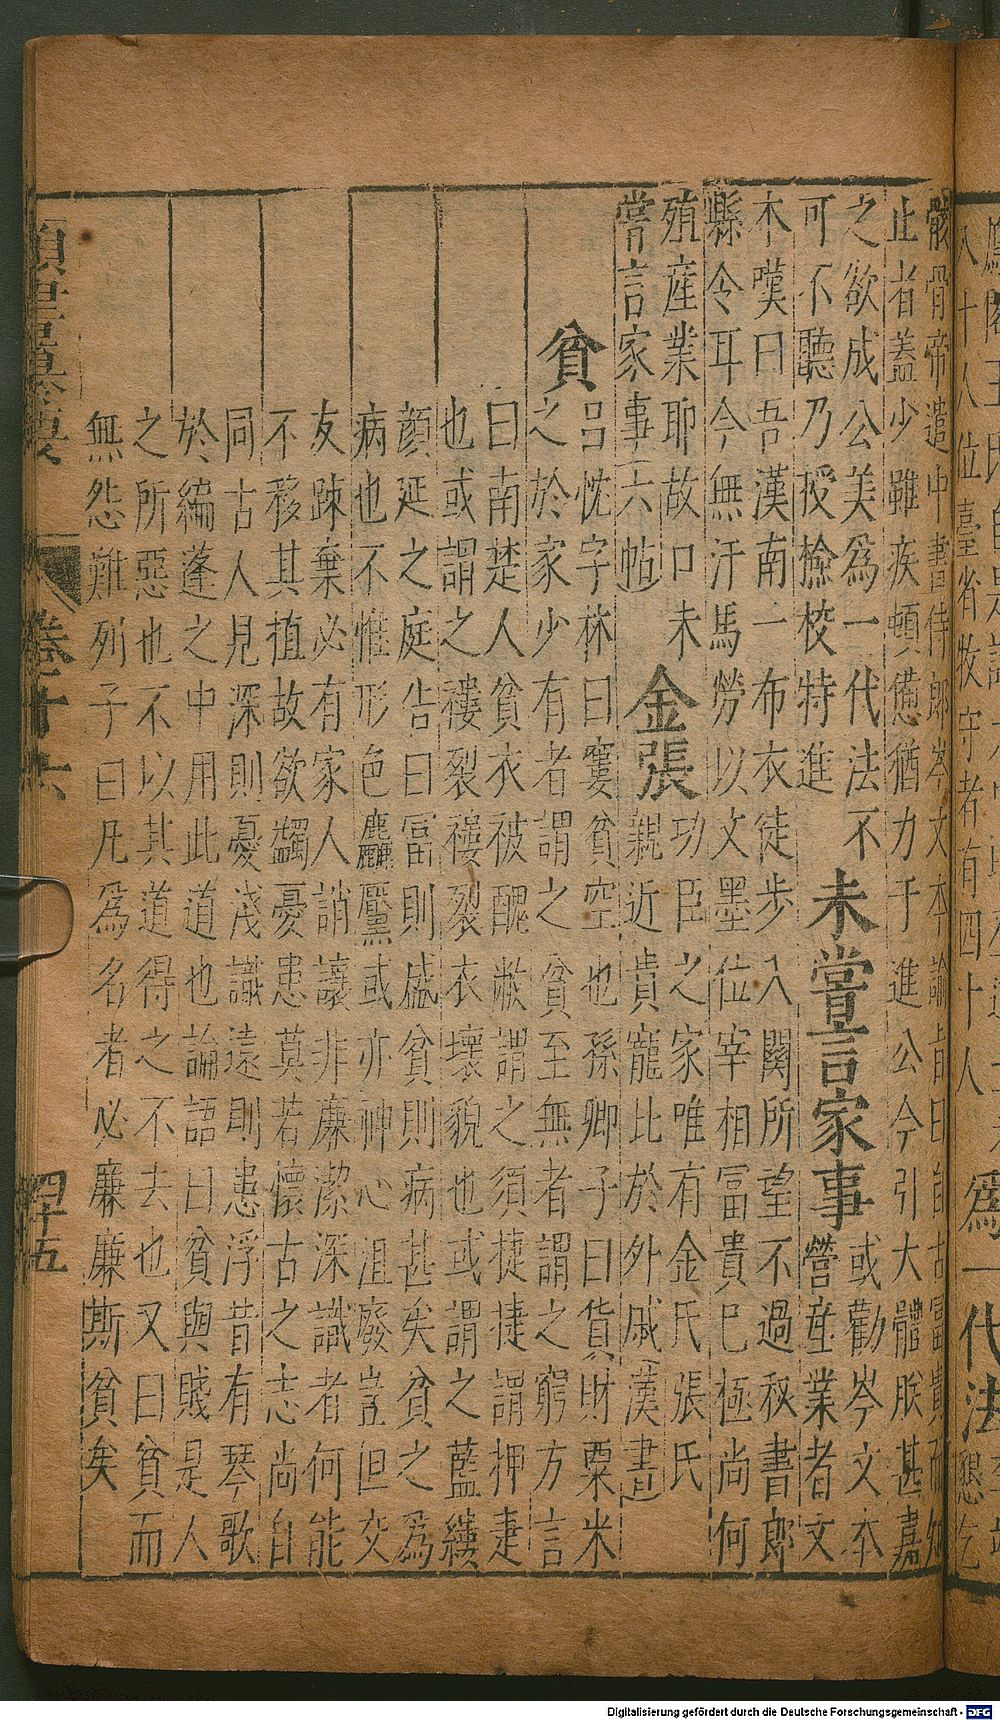 八十人位臺省牧守者有四十人 爲一代法
骸骨帝遣中書侍郎岑文本諭旨曰自古冨貴而知
止者蓋少雖疾頓憊猶力于進公今引大體朕甚嘉
之欲成公美爲一代法不
可不聽乃授撿校特進
未嘗言家事
或勸岑文本
營産業者文
本嘆曰吾漢南一布衣徒步入關所望不過秘書郎
縣令耳今無汗馬勞以文墨位宰相冨貴巳極尚何
殖産業耶故口未
嘗言家事(六帖)
金張
功臣之家唯有金氏張氏
親近貴寵比於外戚(漢書)
貧
吕忱字林曰窶貧空也孫卿子曰貨財粟米
之於家少有者謂之貧至無者謂之窮方言
曰南楚人貧衣被醜敝謂之須捷捷謂押疌
也或謂之褸裂褸裂衣壞貌也或謂之藍縷
顔延之庭告曰冨則盛貧則病甚矣貧之爲
病也不惟形色麤黶或亦神心沮廢豈但交
友踈棄必有家人誚讓非廉潔深識者何能
不移其植故欲蠲憂患莫若懷古之志尚自
同古人見深則憂淺識遠則患浮昔有琴歌
於編蓬之中用此道也論語曰貧與賤是人
之所惡也不以其道得之不去也又曰貧而
無怨難列子曰凡爲名者必廉廉斯貧矣
四十五
Digitalisierung gefördert durch die Deutsche Forschungsgemeinschaft - DFG